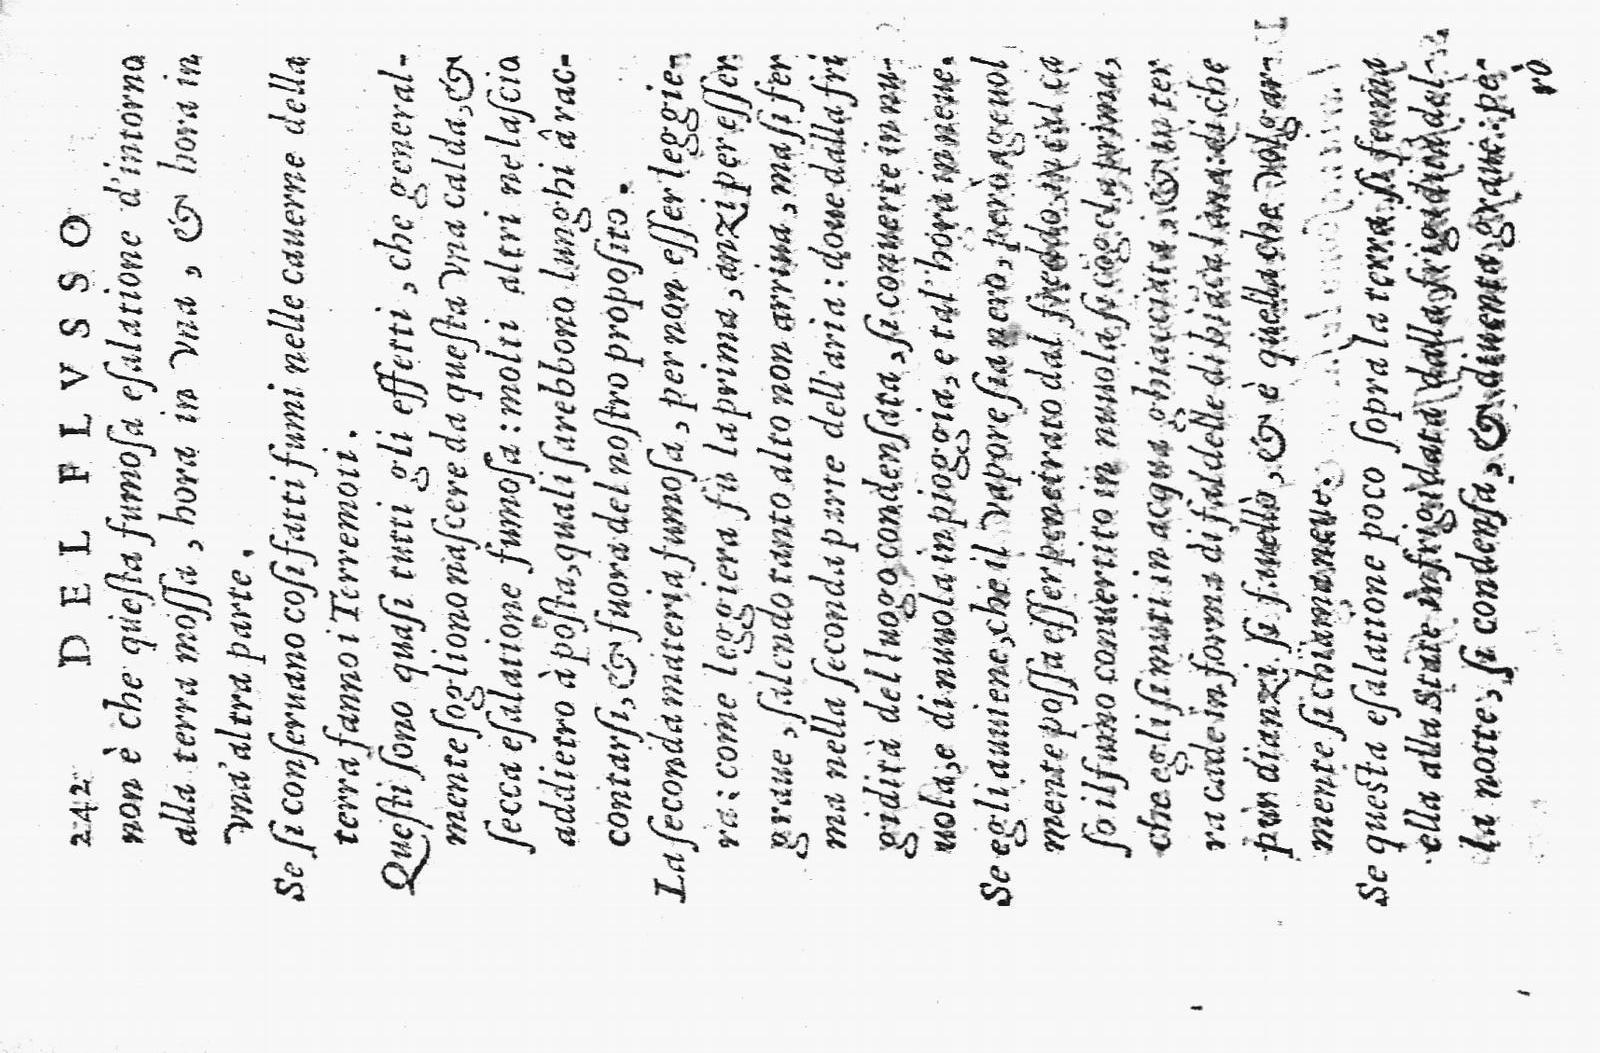 242 DEL FLVSSO
non è che queſta fumoſa eſalatione d'intorno
alla terra moſſa, hora in vna, & hora in
vna' altra parte.
Se ſi conſeruano coſi fatti fumi nelle cauerne della
terra fanno i Terremoti.
Queſti ſono quaſi tutti gli effetti, che general-
mente ſogliono naſcere da queſta vna calda, &
ſecca eſalatione fumoſa: molti altri ne laſcio
addietro à poſta, quali ſarebbono lunghi â rac-
contarſi, & fuora del noſtro propoſito.
La ſeconda materia fumoſa, per non eſſer leggie-
ra: come leggiera fù la prima, anzi per eſſer
graue, ſalendo tanto alto non arriua, ma ſi fer
ma nella ſeconda parte dell'aria: doue dalla fri
gidità del luogo condenſata, ſi conuerte in nu-
uola, e di nuuola in pioggia, e tal'hora in neue.
Se egli auuiene, che il vapore ſia nero, però ageuol
mente poſſa eſſer penetrato dal freddo, in cui ca
ſo il fumo conuertito in nuuola ſi
che egli ſi muti in acqua ghiacciata, & in ter
ra cade in forma di faldelle di biāca lana: di che
pur dianzi ſi fauellò, & è quella che volgar-
mente ſi chiama neue.
Se queſta eſalatione poco ſopra la terra ſi ferma
ella alla State infrigidata dalla frigidità del-
la notte, ſi condenſa, & diuenta graue: pe-
rò